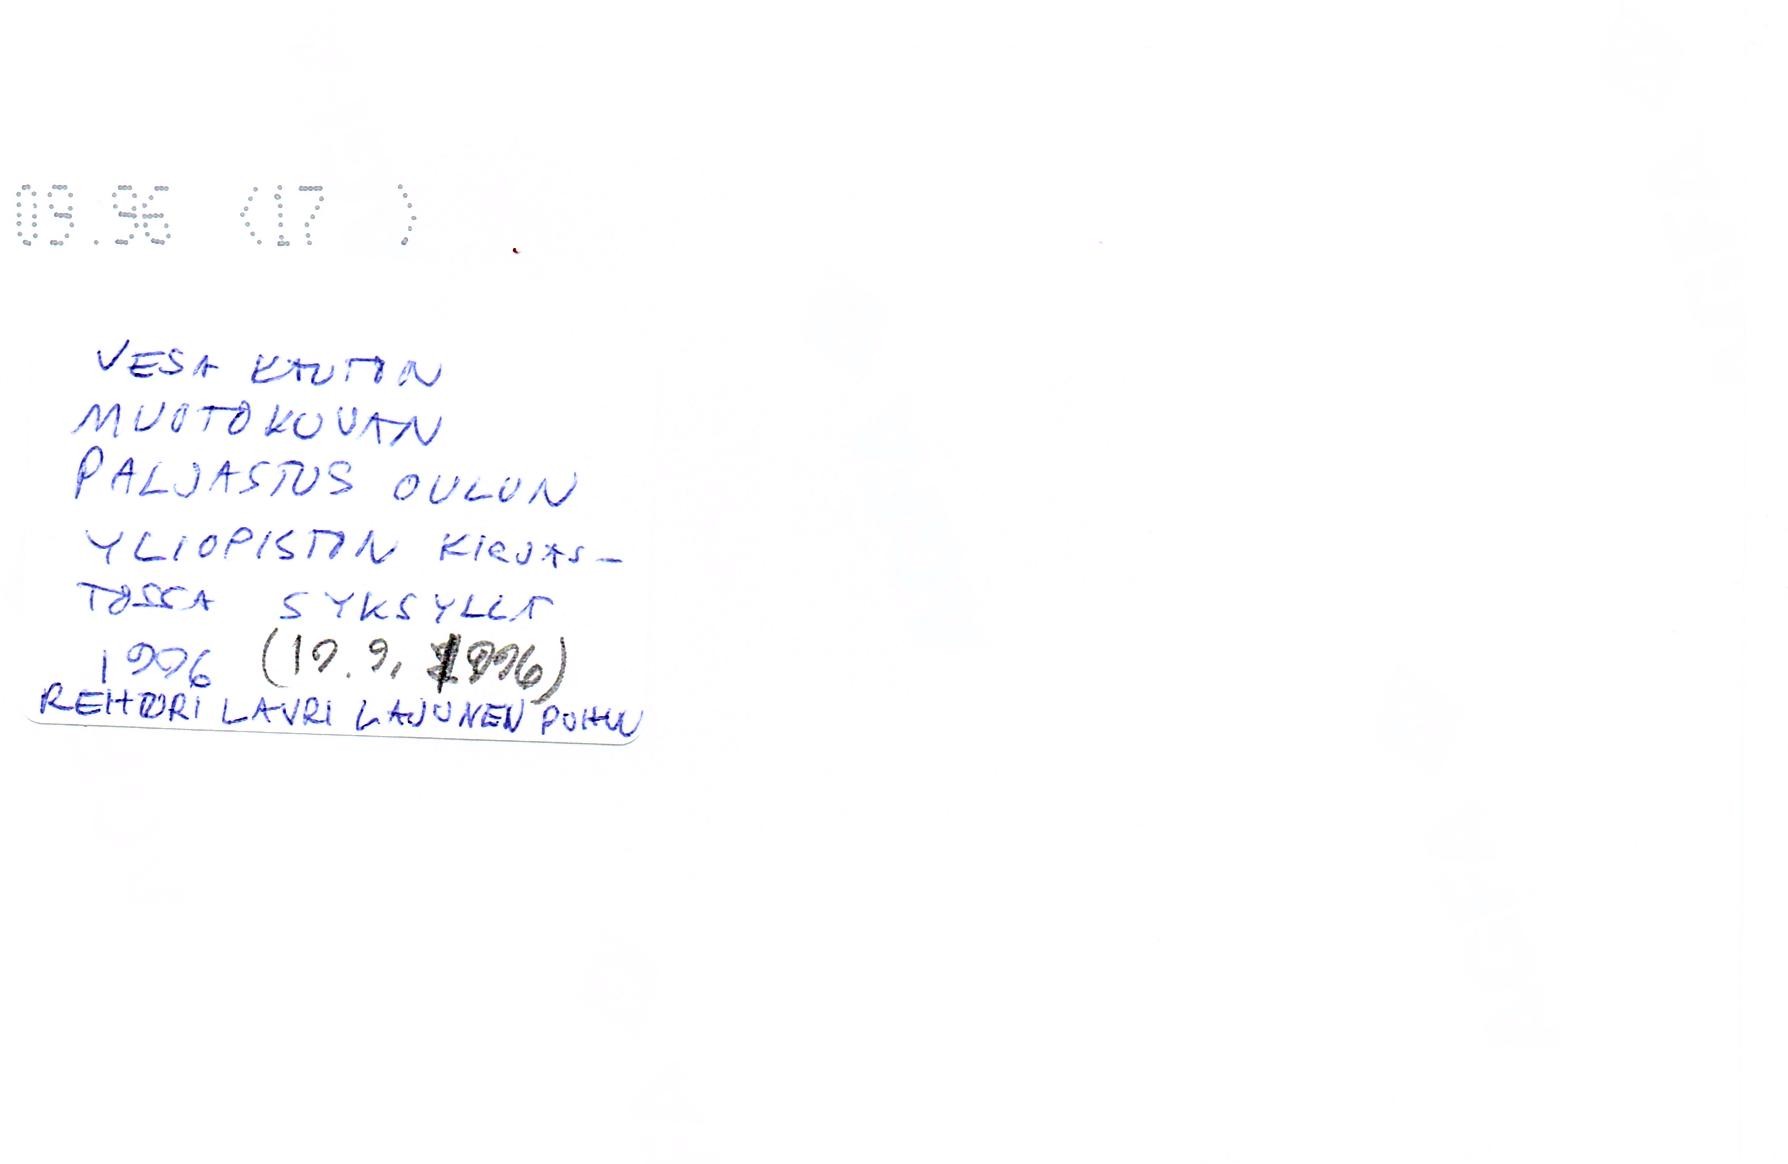 09.96 <17 >
VESA KAUTON
MUOTOKUVAN
PALJASTUS OULUN
YLIOPISTON KIRJAS-
TOSSA SYKSYLLÄ
1996 (19.9. 1996)
REHTORI LAURI LAJUNEN PUHUU